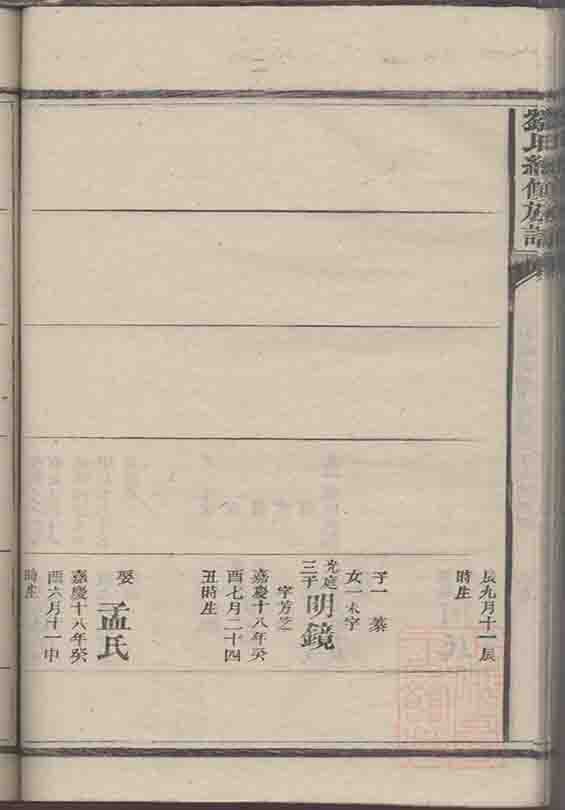 辰九月十一辰
時生
子一
女一未字
光庭
三子
明鏡
字芳芝
嘉慶十八年癸
酉七月二十四
丑時生
娶
孟氏
嘉慶十八年癸
酉六月十一申
時生